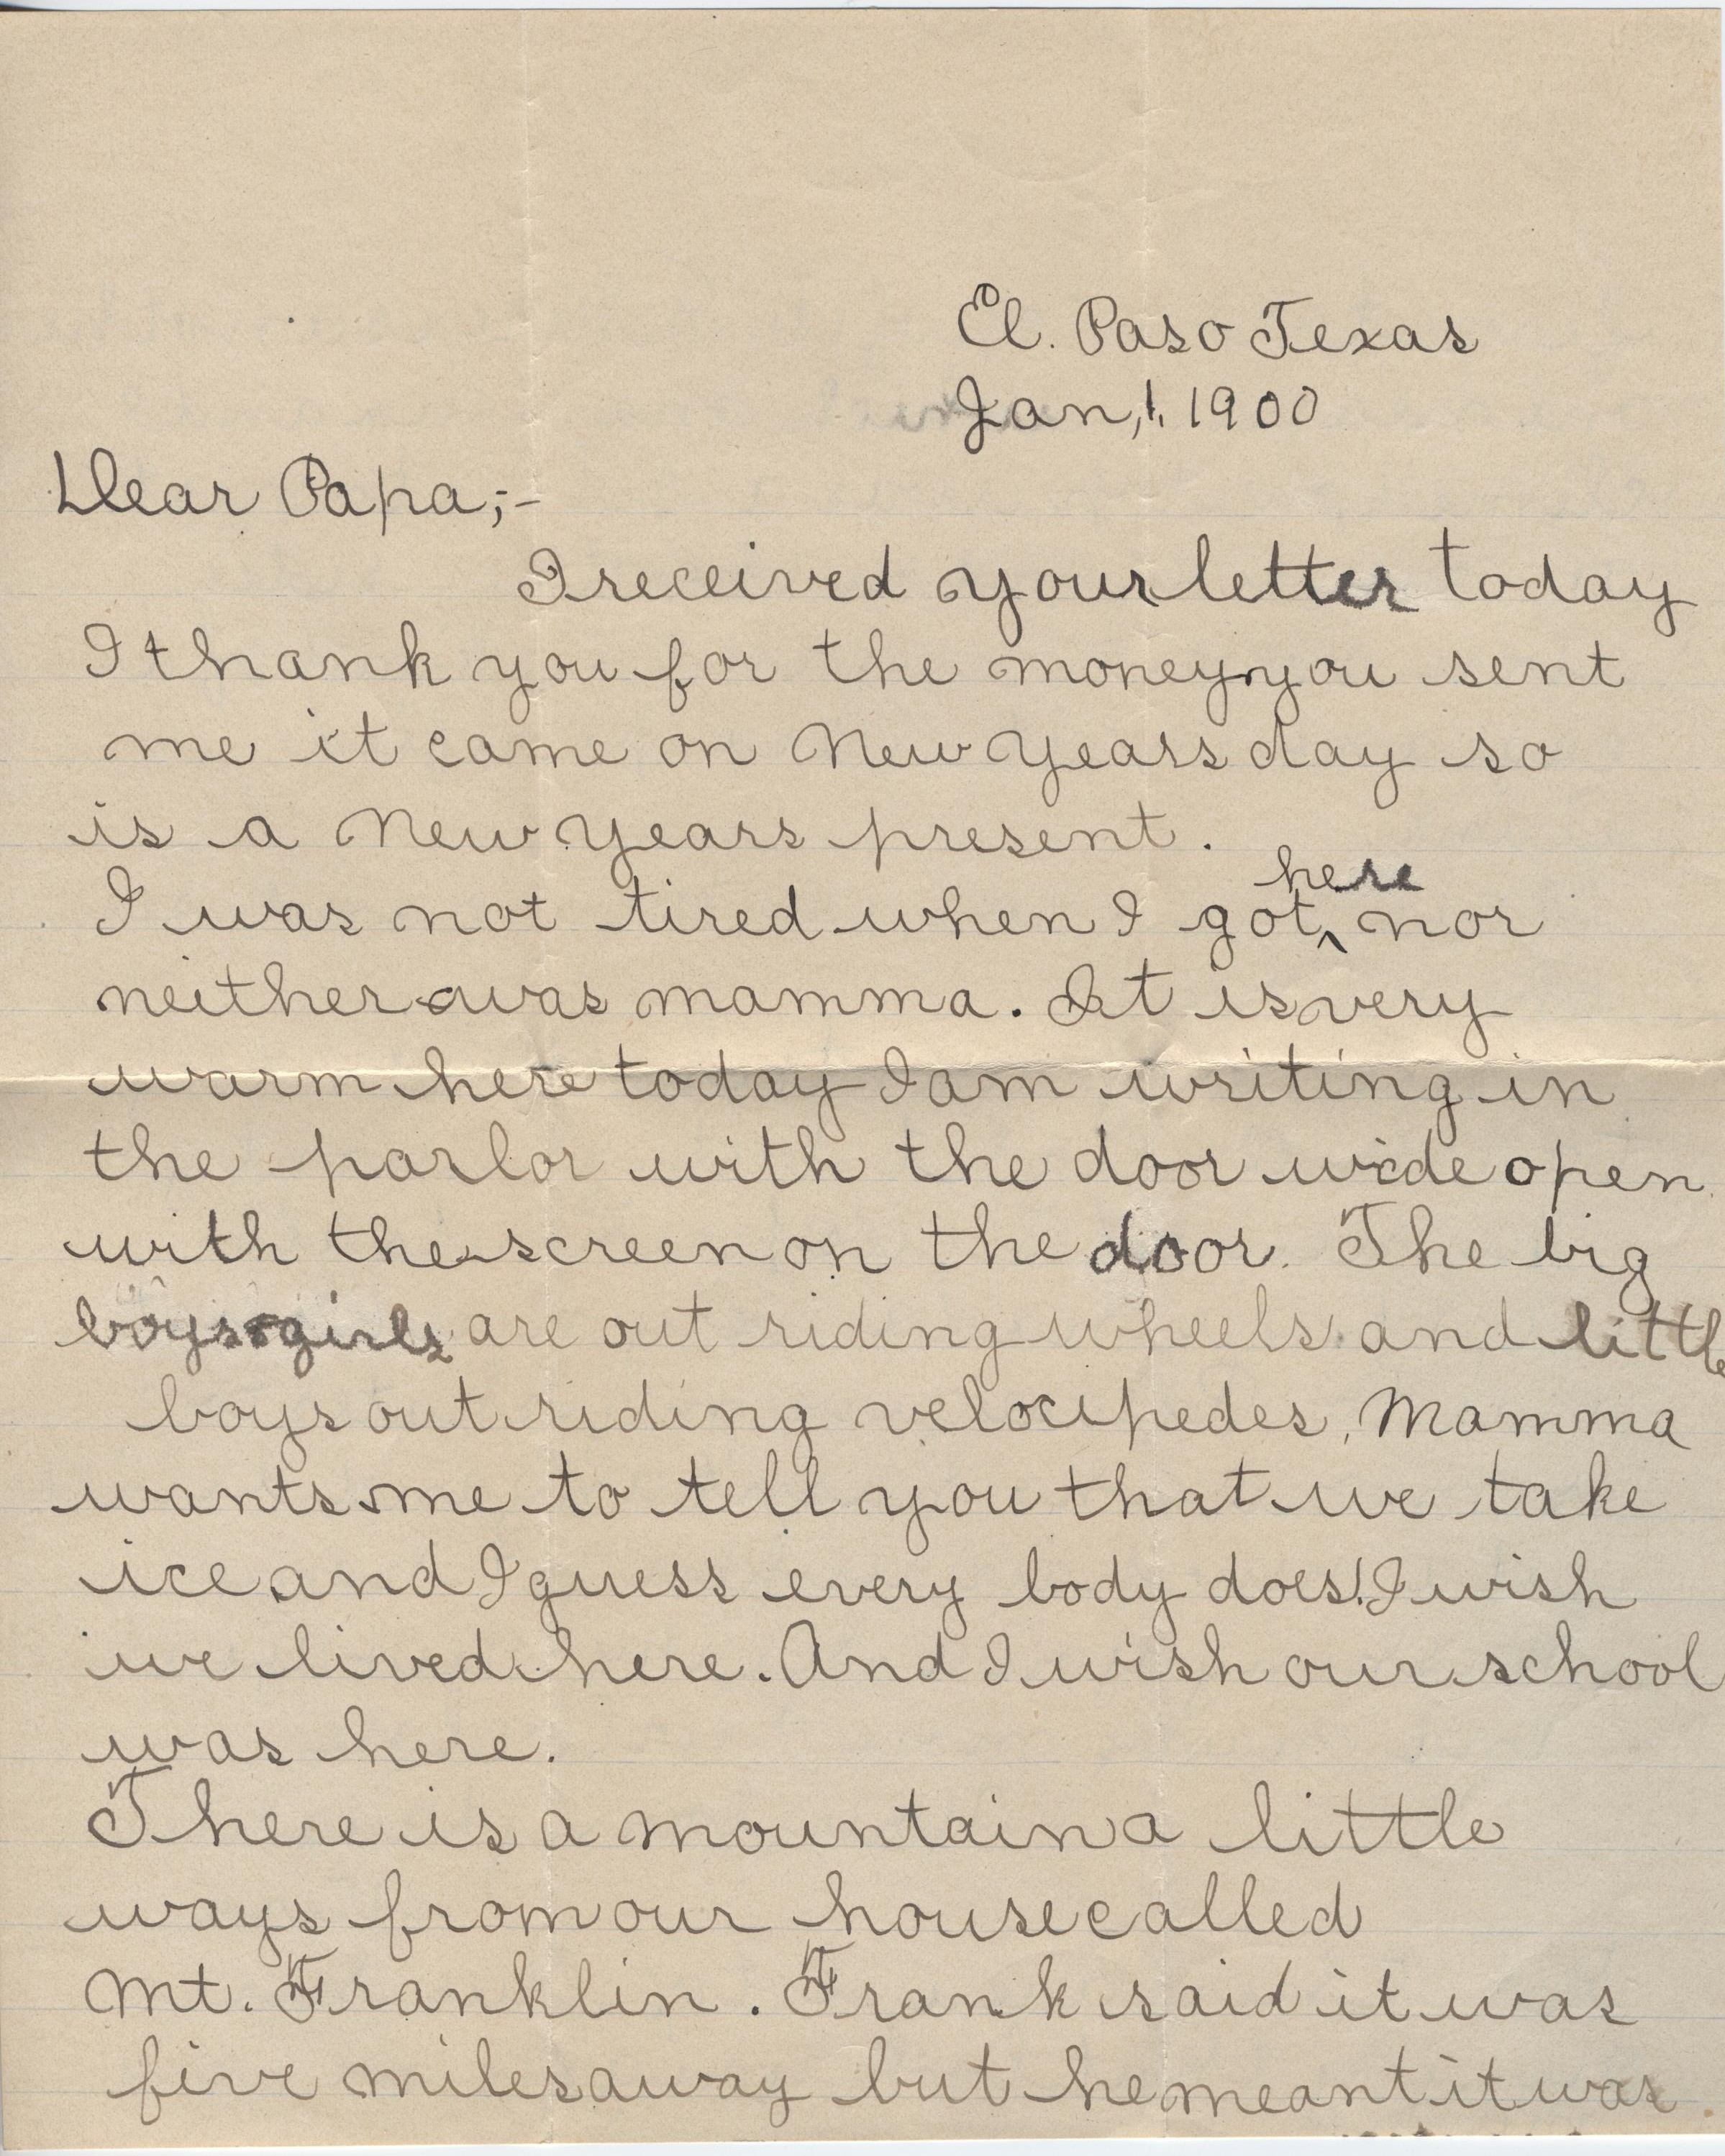 El. Paso Texas
Jan, 1. 1900
Dear Papa,;-
I received your letter today
I thank you for the money you sent
me it came on New Years day so
is a New Years present.
here
I was not tired when I got ^ nor
neither was mamma. It is very
warm here today I am writing in
the parlor with the door wide open
with the screen on the door. The big
boys girls are out riding wheels and little
boys out riding velocipedes, Mamma
wants me to tell you that we take
ice and I guess every body does! I wish
we lived here. And I wish our school
was here.
There is a mountain a little
ways from our house called
Mt. Franklin. Frank said it was
five miles away but he meant it was